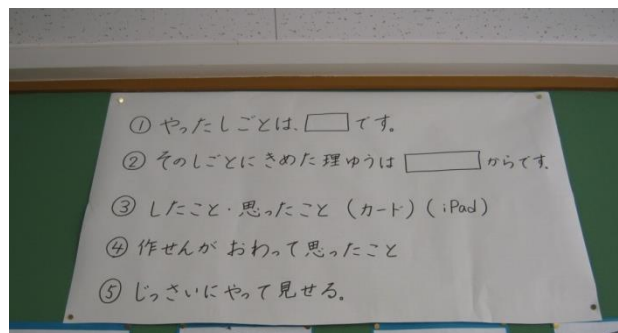 ① やったしごとは、□です。
② そのしごとにきめた理ゆうは□からです。
③ したこと・思ったこと（カード）（iPad）
④ 作せんがおわって思ったこと
⑤ じっさいにやって見せる。